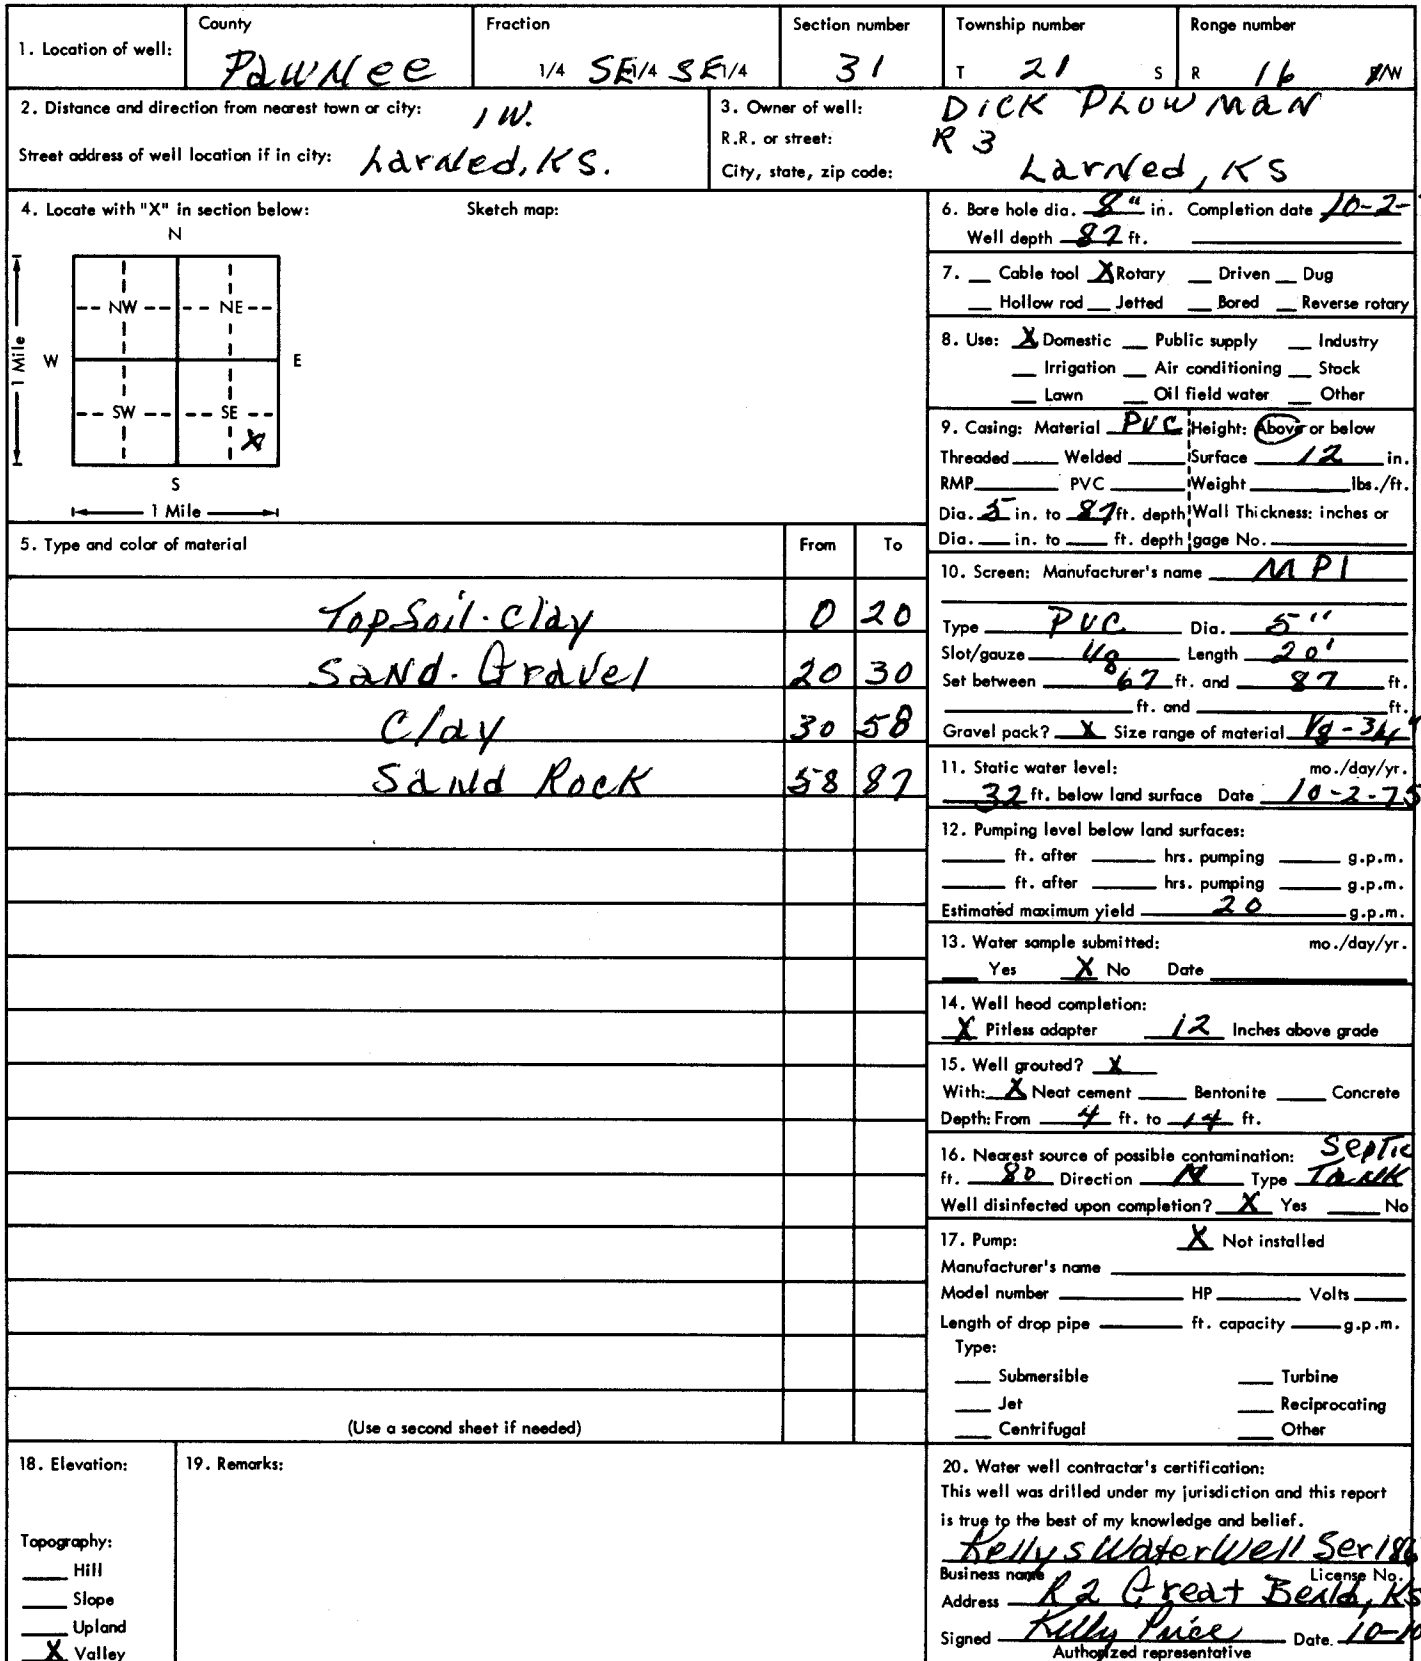 1. Location of well:
County
Pawnee
Fraction
1/4 SE 1/4 SE 1/4
Section number
31
Township number
T 21 S
Range number
R 16 E/W
2. Distance and direction from nearest town or city: 1 W.
Street address of well location if in city: Larned, KS.
3. Owner of well: DICK PLOWMAN
R.R. or street: R 3
City, state, zip code: Larned, KS
4. Locate with "X" in section below: Sketch map:
N
NW NE
W E
1 Mile
SW SE
X
S
1 Mile
5. Type and color of material From To
Top Soil - Clay 0 20
Sand - Gravel 20 30
Clay 30 58
Sand Rock 58 87
(Use a second sheet if needed)
6. Bore hole dia. 8" in. Completion date 10-2-
Well depth 87 ft.
7. __ Cable tool X Rotary __ Driven __ Dug
__ Hollow rod __ Jetted __ Bored __ Reverse rotary
8. Use: X Domestic __ Public supply __ Industry
__ Irrigation __ Air conditioning __ Stock
__ Lawn __ Oil field water __ Other
9. Casing: Material PVC Height: Above or below
Threaded ____ Welded ____ Surface 12 in.
RMP ____ PVC ____ Weight ____ lbs./ft.
Dia. 5 in. to 87 ft. depth Wall Thickness: inches or
Dia. __ in. to __ ft. depth gage No. ____
10. Screen: Manufacturer's name MPI
Type PVC Dia. 5"
Slot/gauze 1/8 Length 20'
Set between 67 ft. and 87 ft.
____ ft. and ____ ft.
Gravel pack? X Size range of material 1/8 - 3/4"
11. Static water level: mo./day/yr.
32 ft. below land surface Date 10-2-75
12. Pumping level below land surfaces:
____ ft. after ____ hrs. pumping ____ g.p.m.
____ ft. after ____ hrs. pumping ____ g.p.m.
Estimated maximum yield 20 g.p.m.
13. Water sample submitted: mo./day/yr.
__ Yes X No Date ____
14. Well head completion:
X Pitless adapter 12 Inches above grade
15. Well grouted? X
With: X Neat cement ____ Bentonite ____ Concrete
Depth: From 4 ft. to 14 ft.
16. Nearest source of possible contamination: Septic
ft. 80 Direction N Type Tank
Well disinfected upon completion? X Yes ____ No
17. Pump: X Not installed
Manufacturer's name ____
Model number ____ HP ____ Volts ____
Length of drop pipe ____ ft. capacity ____ g.p.m.
Type:
__ Submersible __ Turbine
__ Jet __ Reciprocating
__ Centrifugal __ Other
18. Elevation:
Topography:
__ Hill
__ Slope
__ Upland
X Valley
19. Remarks:
20. Water well contractor's certification:
This well was drilled under my jurisdiction and this report
is true to the best of my knowledge and belief.
Kellys Water Well Ser 186
Business name License No.
Address R 2 Great Bend, KS
Signed Kelly Price Date 10-10
Authorized representative